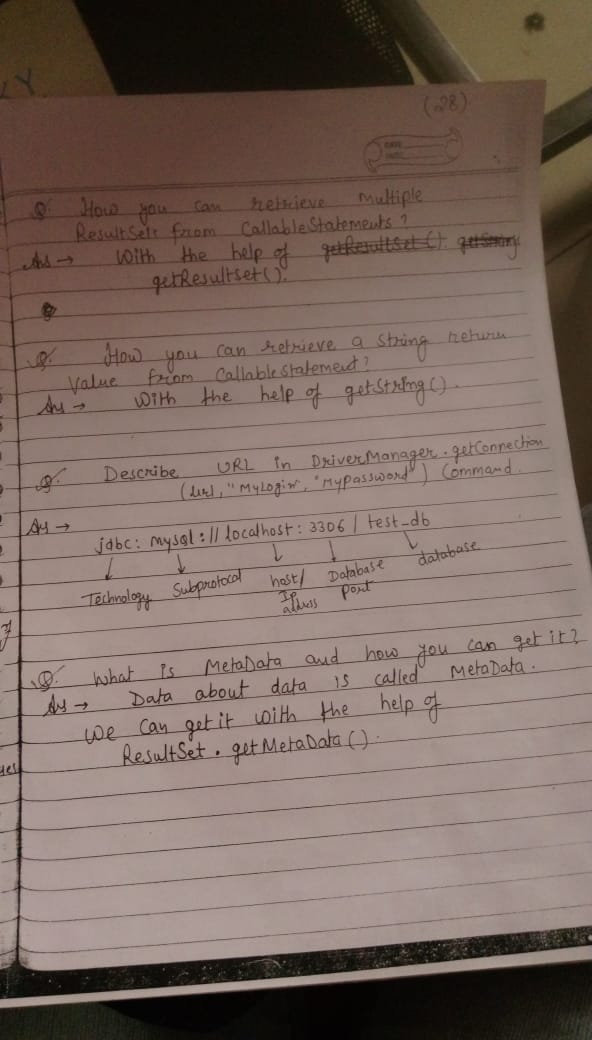 (28)
Q. How you can retrieve multiple
ResultSets from CallableStatements?
Ans → With the help of getResultset() getString
getResultset().
Q. How you can retrieve a string return
value from CallableStatement?
Ans → With the help of getString().
Q. Describe URL in DriverManager.getConnection
(url, "MyLogin", "MyPassword") Command.
Ans →
jdbc: mysql:// localhost: 3306 / test_db
↓ ↓ ↓ ↓ ↓
Technology Subprotocol host/ Database database
IP Port
address
Q. What is MetaData and how you can get it?
Ans → Data about data is called MetaData.
We can get it with the help of
ResultSet.getMetaData().